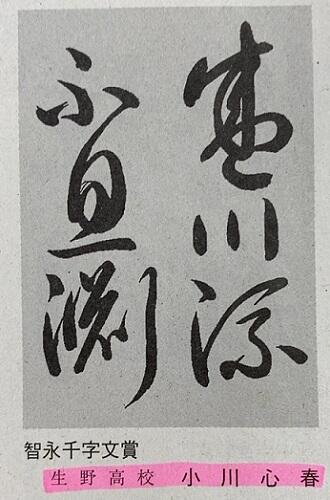 盛川流
不息淵
智永千字文賞
生野高校 小川心春